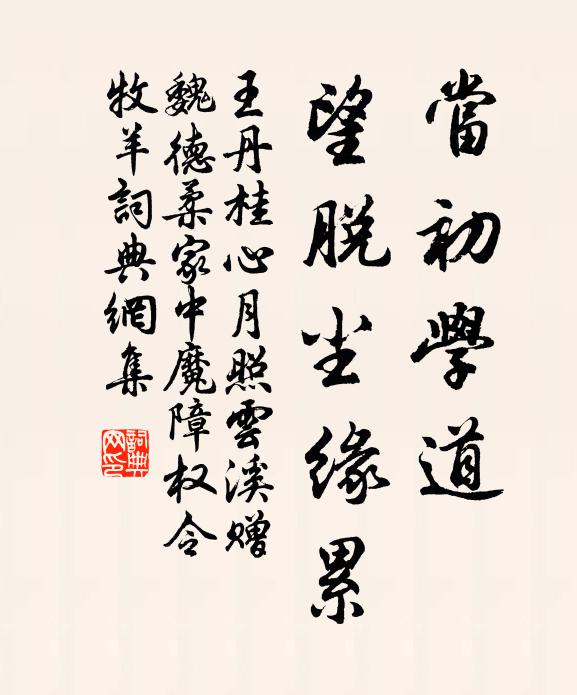 當初學道
望脫尘緣累
王丹桂心月照雲溪贈
魏德柔家中魔障权令
牧羊詞典網集
詞典
网印